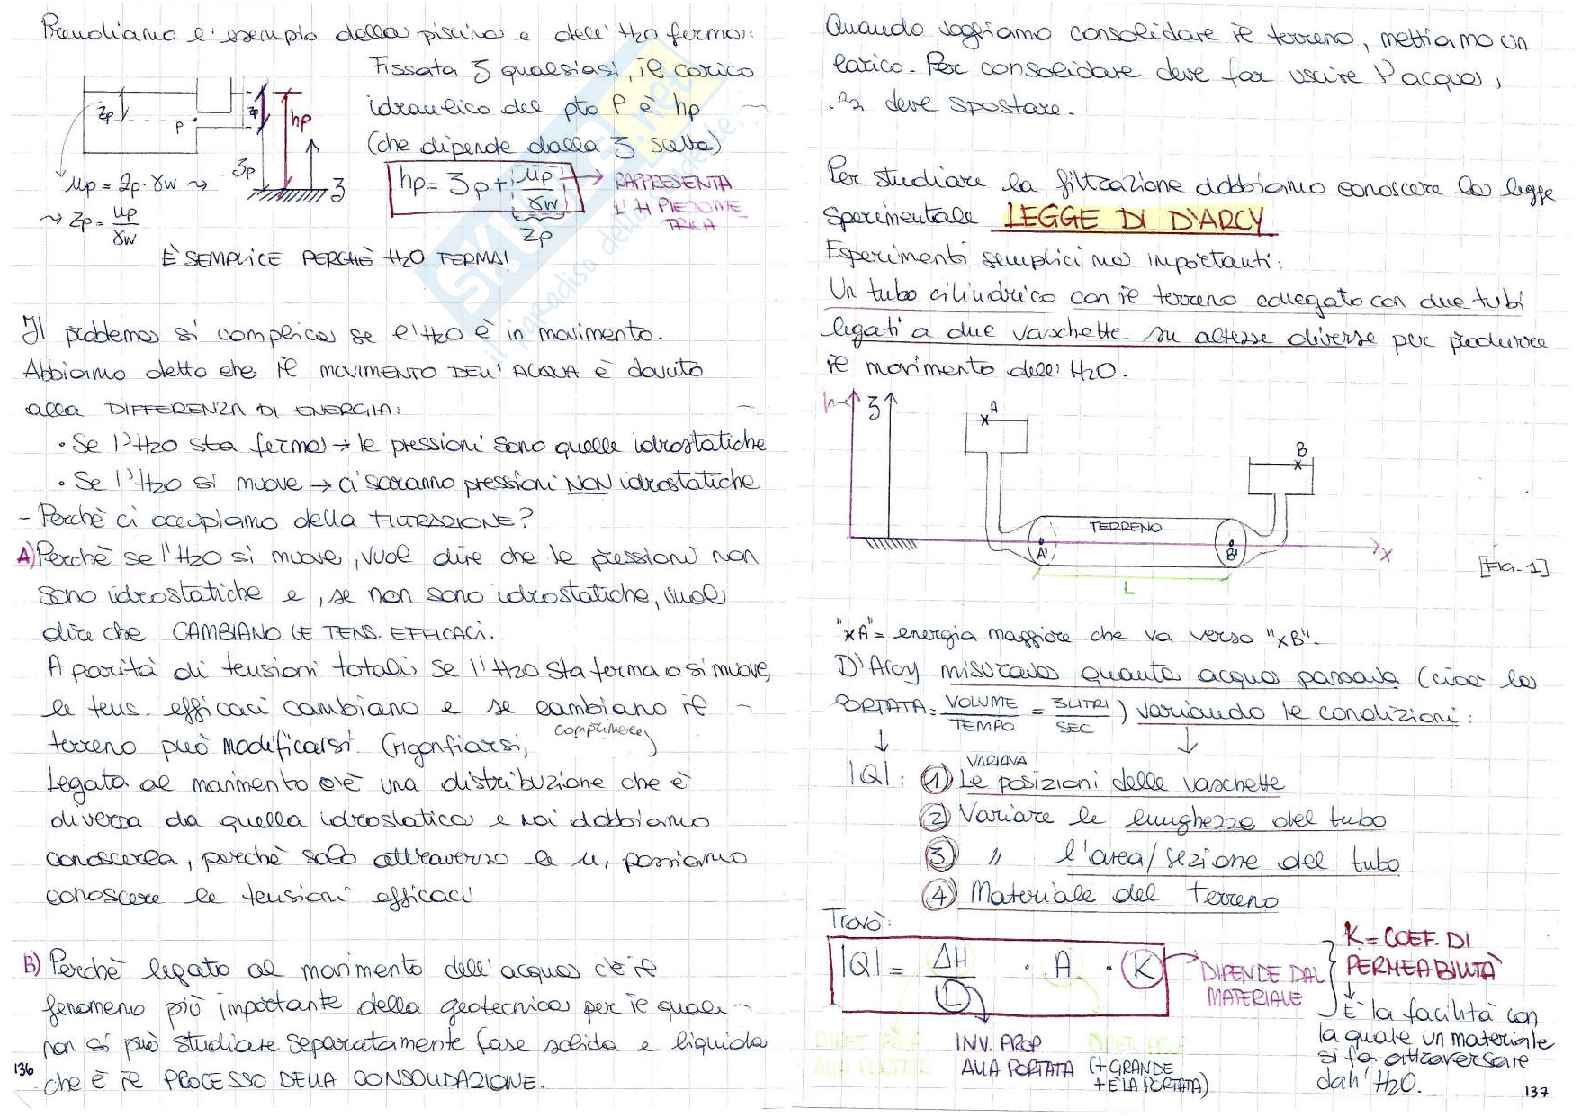 Prendiamo l'esempio della piscina e dell'H2O ferma:
Fissata z qualsiasi, il carico
idraulico del pto P è hp
(che dipende dalla z scelta)
zp
P
zp
hp
ζp
z
μp = zp · γw ⤳
⤳ zp = μp / γw
hp = ζp + μp / γw
zp
RAPPRESENTA
L'H PIEZOME
TRICA
È SEMPLICE PERCHÈ H2O FERMA!
Il problema si complica se l'H2O è in movimento.
Abbiamo detto che il MOVIMENTO DELL'ACQUA è dovuto
alla DIFFERENZA DI ENERGIA:
• Se l'H2O sta ferma → le pressioni sono quelle idrostatiche
• Se l'H2O si muove → ci saranno pressioni NON idrostatiche
- Perchè ci occupiamo della FILTRAZIONE?
A) Perchè se l'H2O si muove, vuol dire che le pressioni non
sono idrostatiche e, se non sono idrostatiche, vuol
dire che CAMBIANO LE TENS. EFFICACI.
A parità di tensioni totali, se l'H2O sta ferma o si muove,
le tens. efficaci cambiano e se cambiano il
terreno può modificarsi (rigonfiarsi, comprimersi)
Legata al movimento c'è una distribuzione che è
diversa da quella idrostatica e noi dobbiamo
conoscerla, perchè solo attraverso la u, possiamo
conoscere le tensioni efficaci
B) Perchè legato al movimento dell'acqua c'è il
fenomeno più importante della geotecnica per il quale
non si può studiare separatamente fase solida e liquida
che è il PROCESSO DELLA CONSOLIDAZIONE.
136
Quando vogliamo consolidare il terreno, mettiamo un
carico. Per consolidare deve far uscire l'acqua,
si deve spostare.
Per studiare la filtrazione dobbiamo conoscere la legge
sperimentale LEGGE DI D'ARCY
Esperimenti semplici ma importanti:
Un tubo cilindrico con il terreno collegato con due tubi
legati a due vaschette su altezze diverse per produrre
il movimento dell'H2O.
h
z
A
B
TERRENO
A'
B'
x
L
[Fig. 1]
"xA" = energia maggiore che va verso "xB".
D'Arcy misurava quanta acqua passava (cioè la
PORTATA = VOLUME / TEMPO = 3 LITRI / SEC) variando le condizioni:
VARIAVA
|Q|: ① Le posizioni delle vaschette
② Variare le lunghezze del tubo
③ " l'area/sezione del tubo
④ Materiale del terreno
Trovò:
|Q| = ΔH / L · A · K
DIPENDE DAL
MATERIALE
K = COEF. DI
PERMEABILITÀ
È la facilità con
la quale un materiale
si fa attraversare
dall'H2O.
INV. PROP
ALLA PORTATA (+ GRANDE
+ È LA PORTATA)
137
SKUOLA.net
il paradiso dello studente...